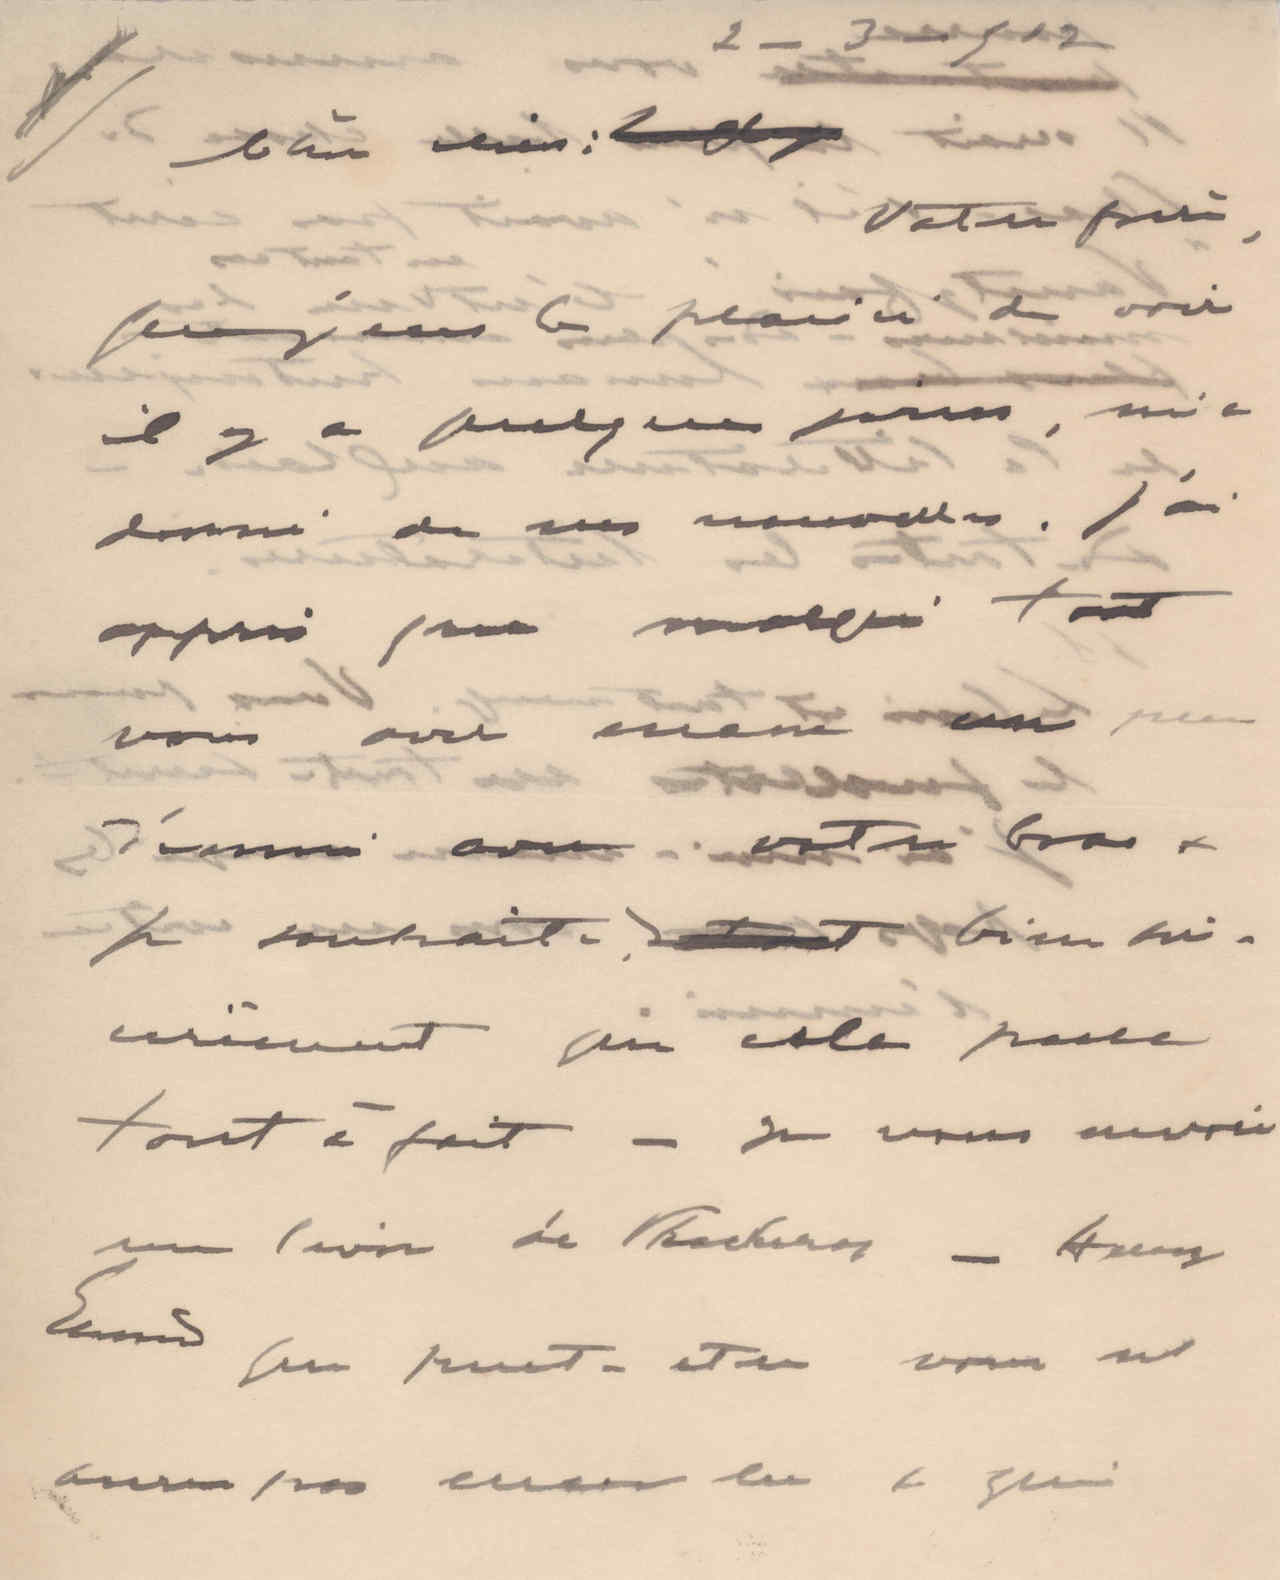 2 - 3 - 912
Chère
Votre frère,
que j'eus le plaisir de voir
il y a quelques jours, m'a
donné de vos nouvelles. J'ai
appris que malgré tout
vous avez encore un peu
d'ennui avec votre bras &
je souhaite bien sin-
cèrement que cela passe
tout à fait - Je vous envoie
un livre de Thackeray - Henry
Esmond que peut-etre vous n'
aurez pas encore lu & qui